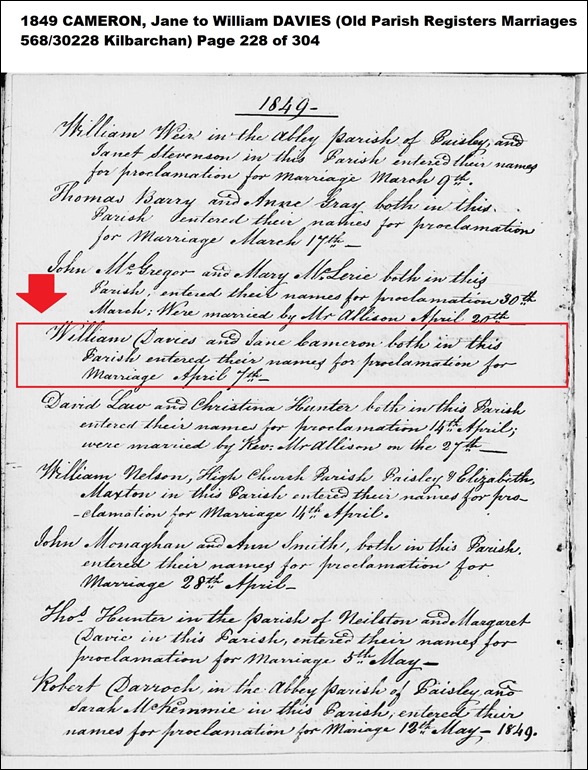 1849 CAMERON, Jane to William DAVIES (Old Parish Registers Marriages
568/30228 Kilbarchan) Page 228 of 304
1849 -
William Weir in the Abbey parish of Paisley, and
Janet Stevenson in this Parish entered their names
for proclamation for Marriage March 9th.
Thomas Barry and Anne Gray both in this
Parish entered their names for proclamation
for Marriage March 17th —
John McGregor and Mary McLerie both in this
Parish; entered their names for proclamation 30th
March; Were married by Mr Allison April 20th —
William Davies and Jane Cameron both in this
Parish entered their names for proclamation for
Marriage April 7th —
David Law and Christina Hunter both in this Parish
entered their names for proclamation 14th April;
were married by Rev: Mr Allison on the 27th —
William Nelson, High Church Parish Paisley & Elizabeth
Maxton in this Parish entered their names for pro-
-clamation for Marriage 14th April.
John Monaghan and Ann Smith, both in this Parish,
entered their names for proclamation for
Marriage 28th April —
Thos. Hunter in the parish of Neilston and Margaret
Davie in this Parish, entered their names for
proclamation for Marriage 5th May —
Robert Darroch, in the Abbey parish of Paisley, and
Sarah McKemmie in this Parish, entered their
names for proclamation for Mariage 12th May — 1849.